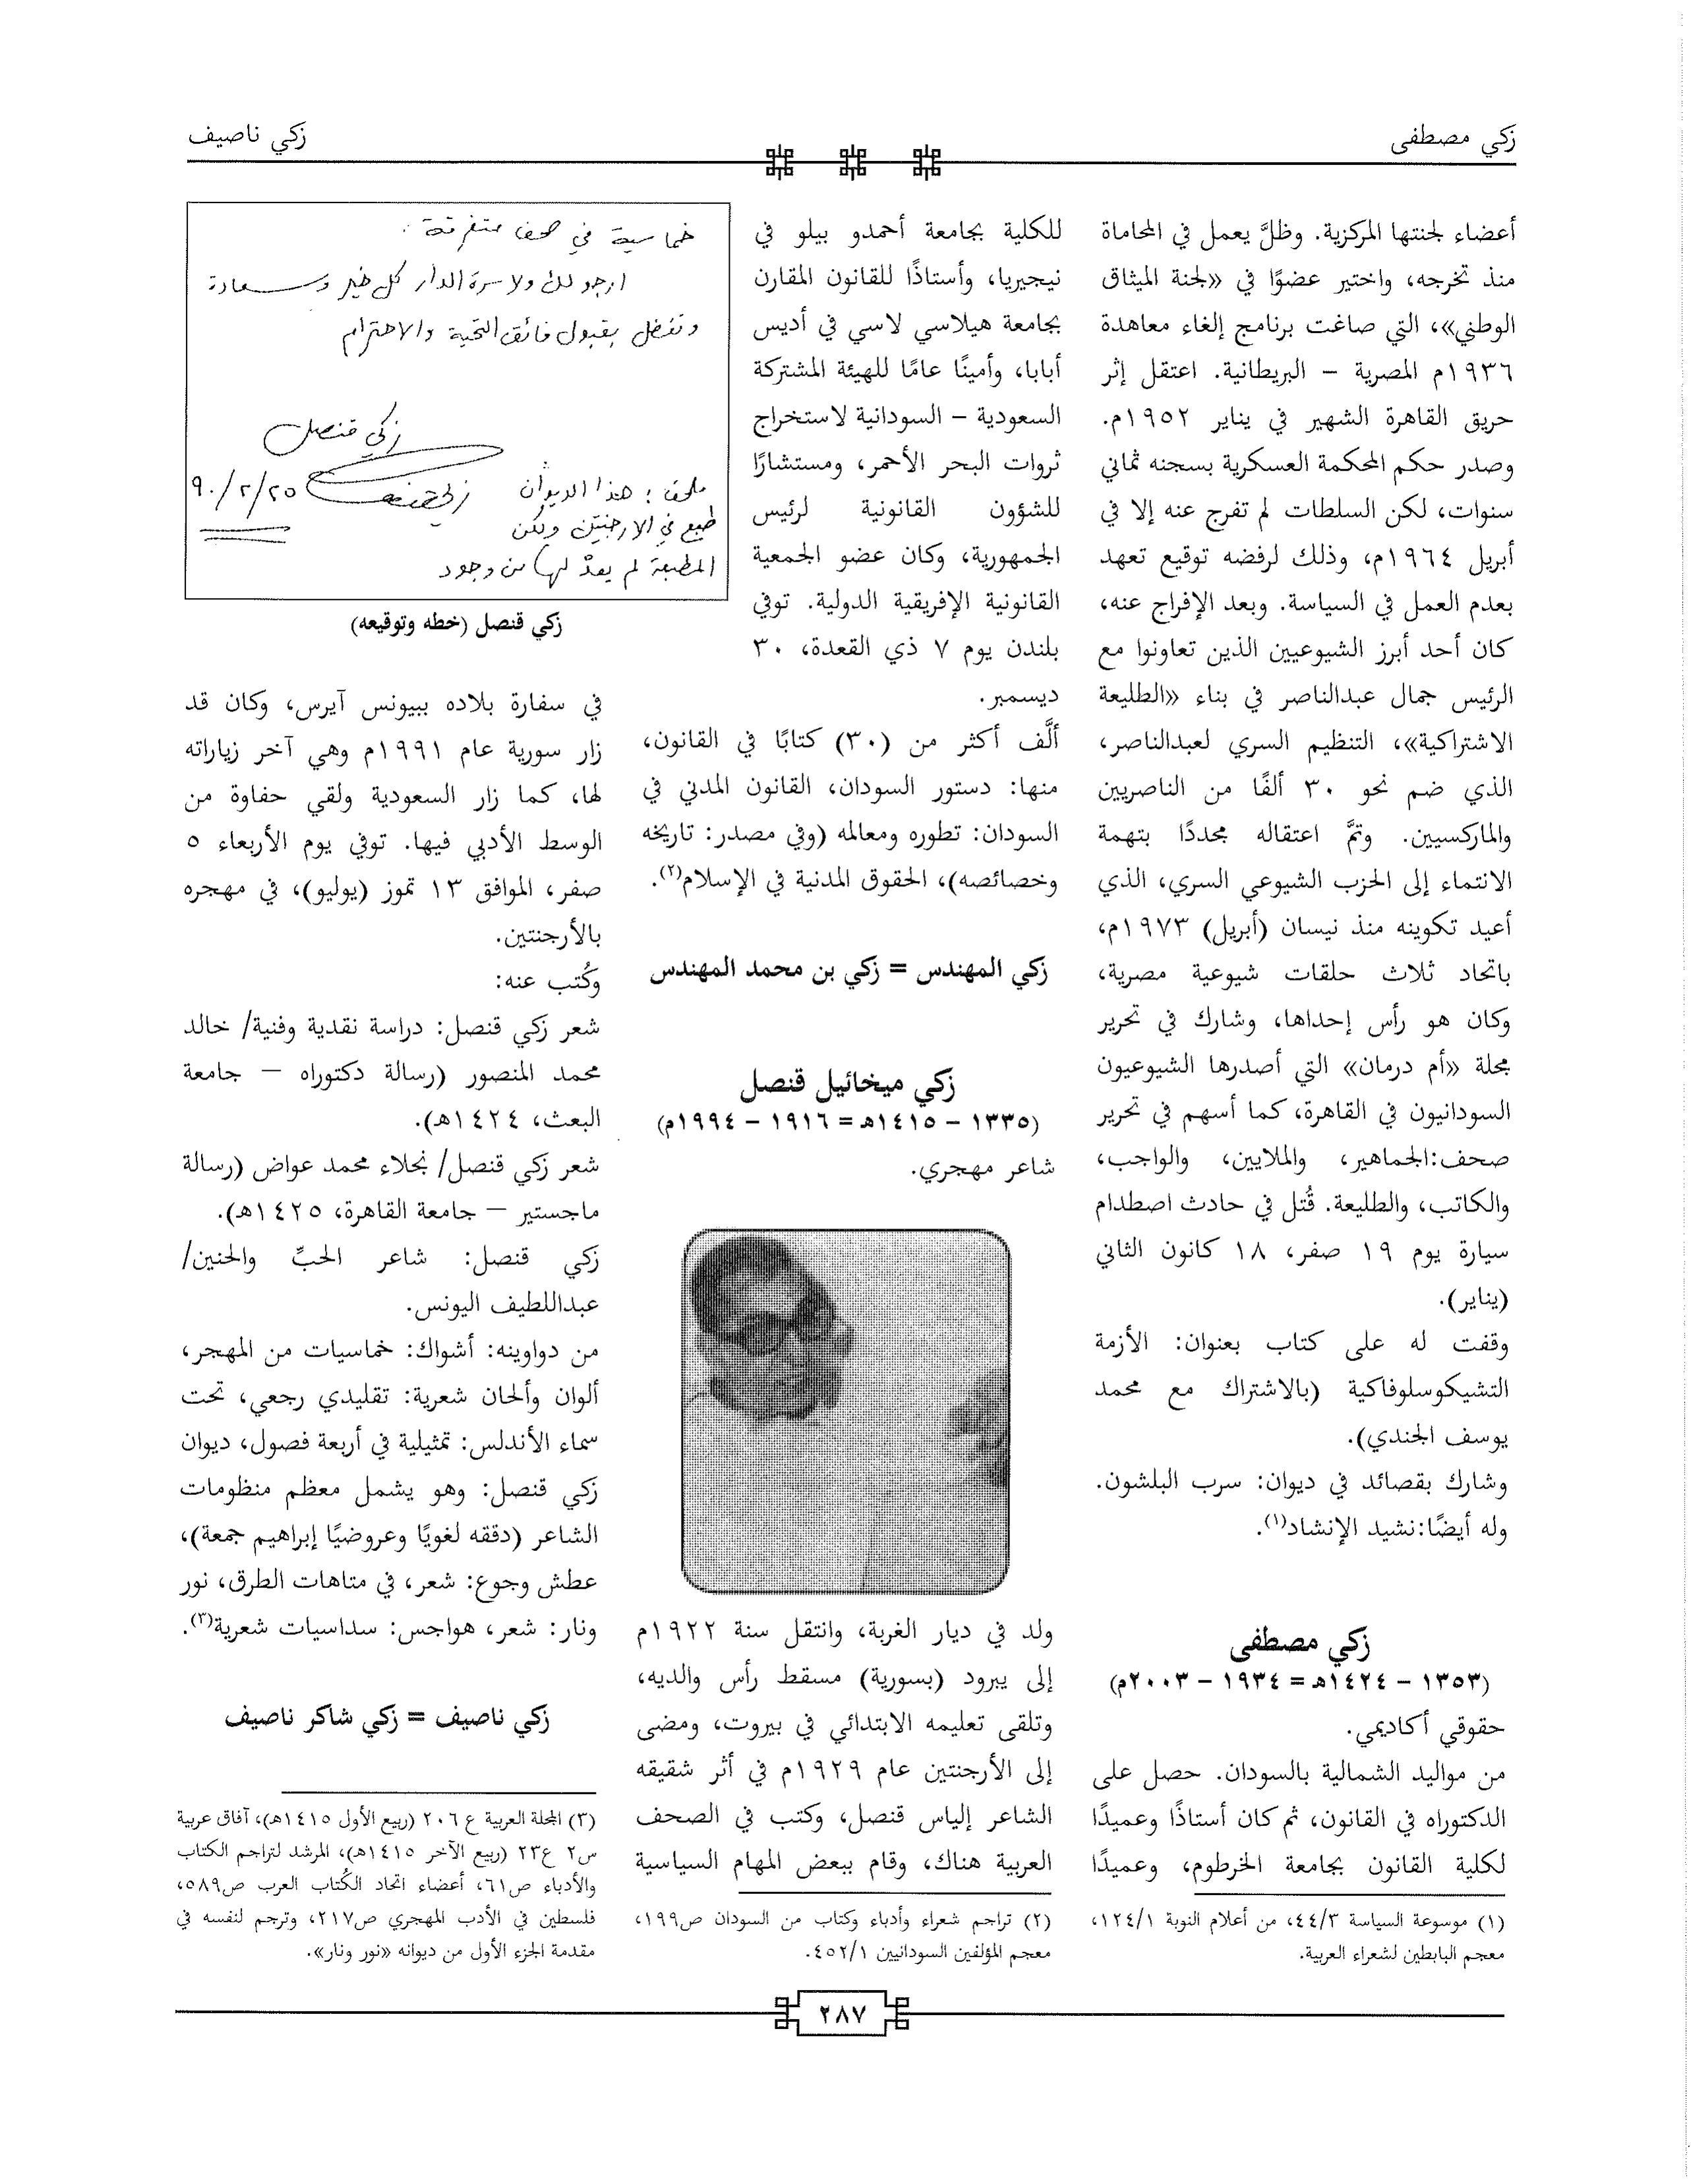 زكي مصطفى
زكي ناصيف
أعضاء لجنتها المركزية. وظلَّ يعمل في المحاماة
منذ تخرجه، واختير عضوًا في «لجنة الميثاق
الوطني»، التي صاغت برنامج إلغاء معاهدة
١٩٣٦م المصرية – البريطانية. اعتقل إثر
حريق القاهرة الشهير في يناير ١٩٥٢م.
وصدر حكم المحكمة العسكرية بسجنه ثماني
سنوات، لكن السلطات لم تفرج عنه إلا في
أبريل ١٩٦٤م، وذلك لرفضه توقيع تعهد
بعدم العمل في السياسة. وبعد الإفراج عنه،
كان أحد أبرز الشيوعيين الذين تعاونوا مع
الرئيس جمال عبدالناصر في بناء «الطليعة
الاشتراكية»، التنظيم السري لعبدالناصر،
الذي ضم نحو ٣٠ ألفًا من الناصريين
والماركسيين. وتمَّ اعتقاله مجددًا بتهمة
الانتماء إلى الحزب الشيوعي السري، الذي
أعيد تكوينه منذ نيسان (أبريل) ١٩٧٣م،
باتحاد ثلاث حلقات شيوعية مصرية،
وكان هو رأس إحداها، وشارك في تحرير
مجلة «أم درمان» التي أصدرها الشيوعيون
السودانيون في القاهرة، كما أسهم في تحرير
صحف:الجماهير، والملايين، والواجب،
والكاتب، والطليعة. قُتل في حادث اصطدام
سيارة يوم ١٩ صفر، ١٨ كانون الثاني
(يناير).
وقفت له على كتاب بعنوان: الأزمة
التشيكوسلوفاكية (بالاشتراك مع محمد
يوسف الجندي).
وشارك بقصائد في ديوان: سرب البلشون.
وله أيضًا:نشيد الإنشاد(١).
زكي مصطفى
(١٣٥٣ – ١٤٢٤هـ = ١٩٣٤ – ٢٠٠٣م)
حقوقي أكاديمي.
من مواليد الشمالية بالسودان. حصل على
الدكتوراه في القانون، ثم كان أستاذًا وعميدًا
لكلية القانون بجامعة الخرطوم، وعميدًا
(١) موسوعة السياسة ٤٤/٣، من أعلام النوبة ١٢٤/١،
معجم البابطين لشعراء العربية.
للكلية بجامعة أحمدو بيلو في
نيجيريا، وأستاذًا للقانون المقارن
بجامعة هيلاسي لاسي في أديس
أبابا، وأمينًا عامًا للهيئة المشتركة
السعودية – السودانية لاستخراج
ثروات البحر الأحمر، ومستشارًا
للشؤون القانونية لرئيس
الجمهورية، وكان عضو الجمعية
القانونية الإفريقية الدولية. توفي
بلندن يوم ٧ ذي القعدة، ٣٠
ديسمبر.
ألَّف أكثر من (٣٠) كتابًا في القانون،
منها: دستور السودان، القانون المدني في
السودان: تطوره ومعالمه (وفي مصدر: تاريخه
وخصائصه)، الحقوق المدنية في الإسلام(٢).
زكي المهندس = زكي بن محمد المهندس
زكي ميخائيل قنصل
(١٣٣٥ – ١٤١٥هـ = ١٩١٦ – ١٩٩٤م)
شاعر مهجري.
ولد في ديار الغربة، وانتقل سنة ١٩٢٢م
إلى يبرود (بسورية) مسقط رأس والديه،
وتلقى تعليمه الابتدائي في بيروت، ومضى
إلى الأرجنتين عام ١٩٢٩م في أثر شقيقه
الشاعر إلياس قنصل، وكتب في الصحف
العربية هناك، وقام ببعض المهام السياسية
(٢) تراجم شعراء وأدباء وكتاب من السودان ص١٩٩،
معجم المؤلفين السودانيين ٤٥٢/١.
خماسية في صحف متفرقة .
ارجو لك ولاسرة الدار كل خير وسعادة
وتفضل بقبول فائق التحية والاحترام
زكي قنصل
٩٠/٢/٢٥
ملحق : هذا الديوان
طبع في الارجنتين ولكن
المطبعة لم يعدْ لها من وجود
زكي قنصل (خطه وتوقيعه)
في سفارة بلاده ببيونس آيرس، وكان قد
زار سورية عام ١٩٩١م وهي آخر زياراته
لها، كما زار السعودية ولقي حفاوة من
الوسط الأدبي فيها. توفي يوم الأربعاء ٥
صفر، الموافق ١٣ تموز (يوليو)، في مهجره
بالأرجنتين.
وكُتب عنه:
شعر زكي قنصل: دراسة نقدية وفنية/ خالد
محمد المنصور (رسالة دكتوراه – جامعة
البعث، ١٤٢٤هـ).
شعر زكي قنصل/ نجلاء محمد عواض (رسالة
ماجستير – جامعة القاهرة، ١٤٢٥هـ).
زكي قنصل: شاعر الحبِّ والحنين/
عبداللطيف اليونس.
من دواوينه: أشواك: خماسيات من المهجر،
ألوان وألحان شعرية: تقليدي رجعي، تحت
سماء الأندلس: تمثيلية في أربعة فصول، ديوان
زكي قنصل: وهو يشمل معظم منظومات
الشاعر (دققه لغويًا وعروضيًا إبراهيم جمعة)،
عطش وجوع: شعر، في متاهات الطرق، نور
ونار: شعر، هواجس: سداسيات شعرية(٣).
زكي ناصيف = زكي شاكر ناصيف
(٣) المجلة العربية ع ٢٠٦ (ربيع الأول ١٤١٥هـ)، آفاق عربية
س٢ ع٢٣ (ربيع الآخر ١٤١٥هـ)، المرشد لتراجم الكتاب
والأدباء ص٦١، أعضاء اتحاد الكُتاب العرب ص٥٨٩،
فلسطين في الأدب المهجري ص٢١٧، وترجم لنفسه في
مقدمة الجزء الأول من ديوانه «نور ونار».
٢٨٧